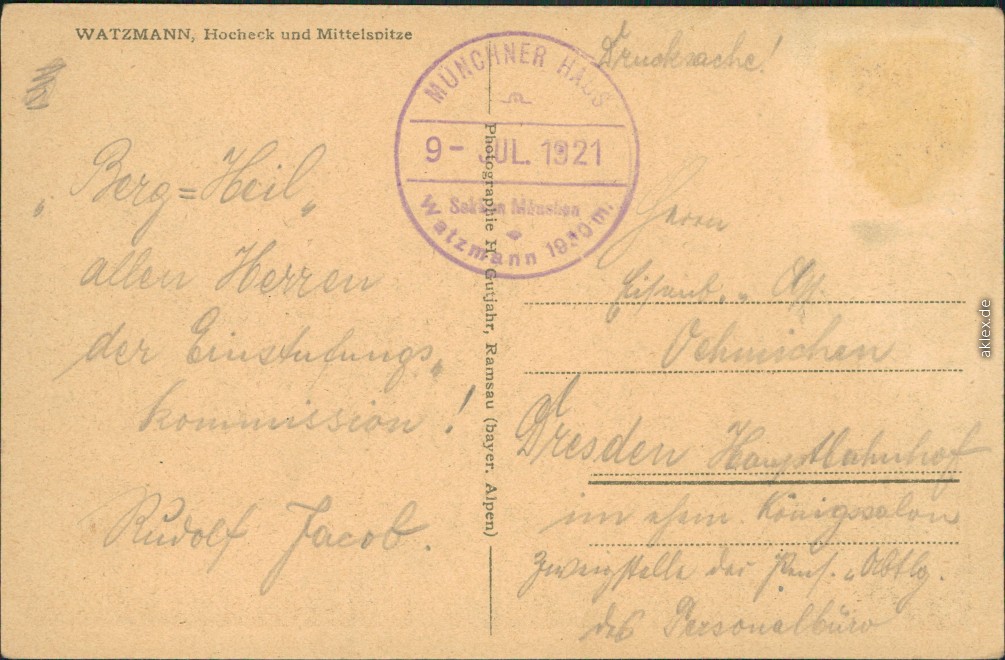 WATZMANN, Hocheck und Mittelspitze
Drucksache!
MÜNCHNER HAUS
9- JUL. 1921
Sektion München
Watzmann 1930m.
„Berg=Heil„
allen Herren
der Einstufungs„
kommission!
Rudolf Jacob.
Photographie H. Gutjahr, Ramsau (bayer. Alpen)
Herrn
Oehmichen
Dresden Hauptbahnhof
im ehem. Königssalon
Zweigstelle der Pens.„Abtlg.
des Personalbüro
aklex.de